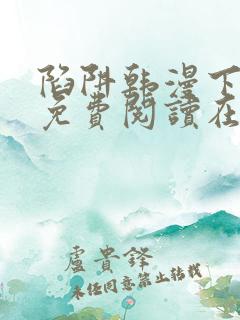 陷阱韩漫下
免費閱讀在
盧貴鋒
未经同意禁止转载